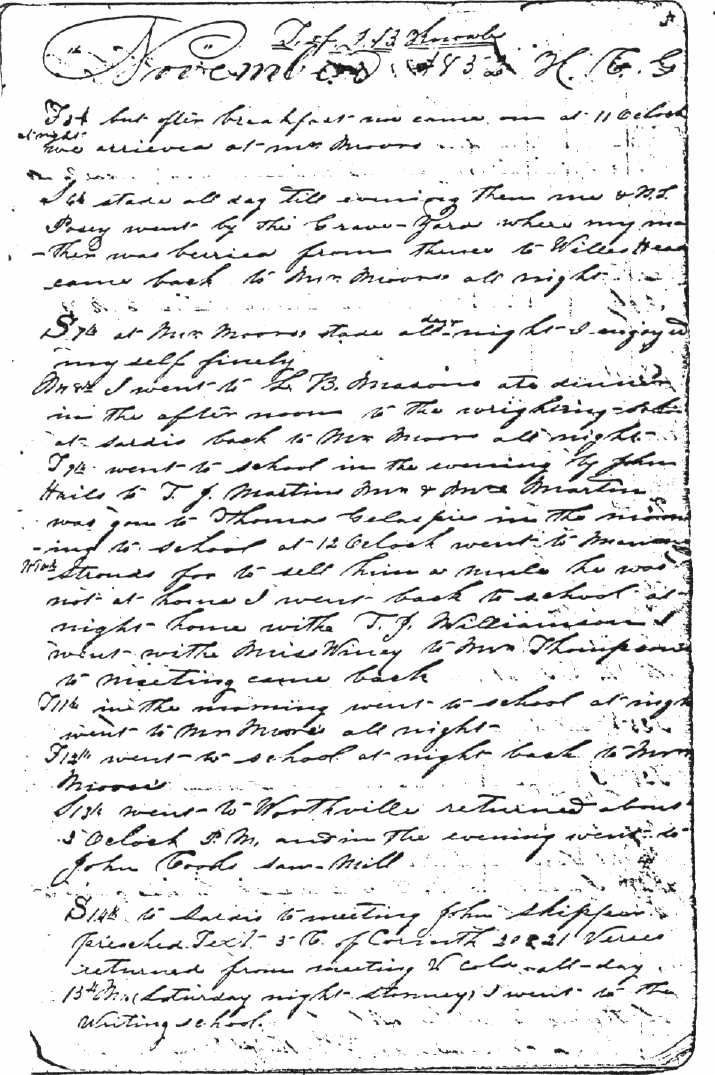 November 1852 H. T. G
F 5th but after breakfast we came on at 11 Oclock
at night
we arrieved at Mr Moors
S 6th stade all day till evening then me & N.L.
Posey went by the Grave-Yard where my mo
-ther was berried from thence to Willis Head
came back to Mr. Moors all night
S 7th at Mr. Moors stade all day-night I enjoyed
my self finely
Mn 8th I went to L. B. Masons ate dinner
in the after noon to the wrighting-
at Sardis back to Mr Moors all night
T 9th went to school in the evening by John
Hails to T. J. Martins Mr & Mrs Martin
was gon to Thomas Gelaspies in the morn
-ing to school at 12 Oclock went to
W 10th
Strouds for to sell him a mule he was
not at home I went back to school at
night home withe T. J. Williamson I
went withe Miss Winey to Mr. Thompsons
to meeting came back
T 11th in the morning went to school at nigh
went to Mr Moors all night
F 12th went to school at night back to Mr
Moors
S 13th went to Worthville returned about
Oclock P.M. and in the evening went to
John Goods saw-Mill
S 14th to Sardis to meeting John Skipper
preached Text 5 C. of Corinth 20 & 21 Verses
returned from meeting & cold all-day
15th Mn. (Saturday night Stormey) I went to the
Writing school.